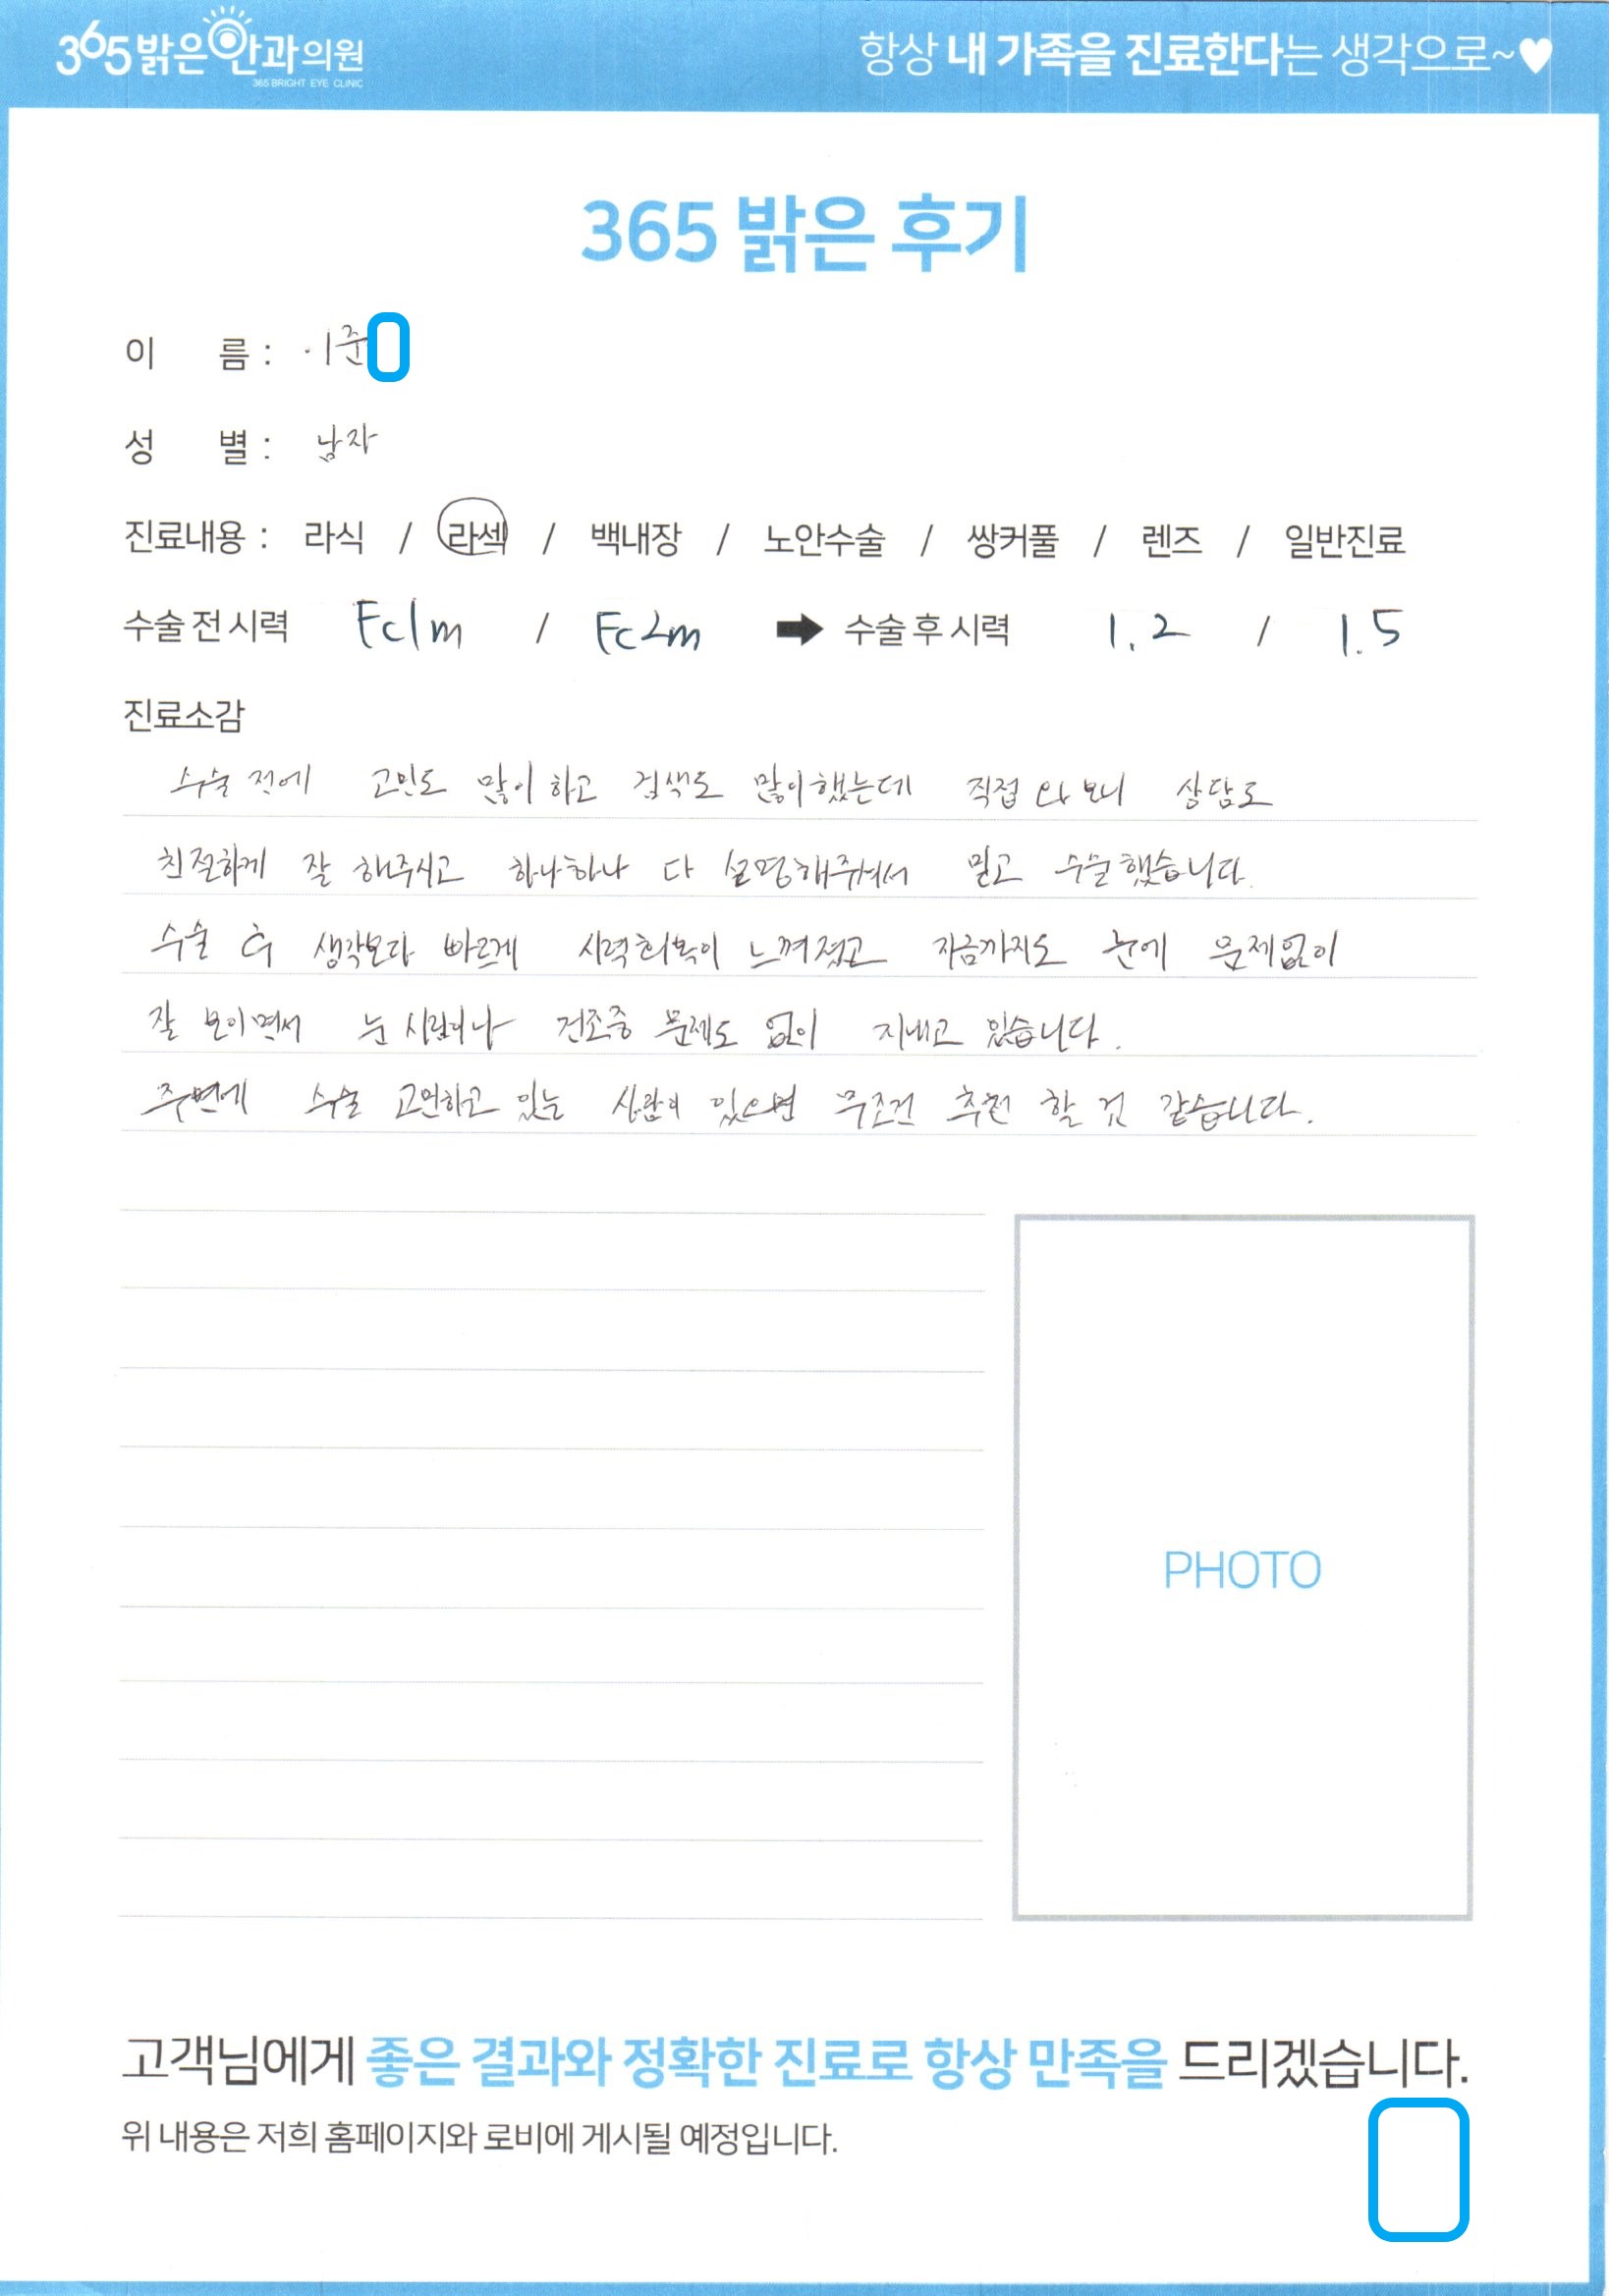 365밝은안과의원
365 BRIGHT EYE CLINIC
항상 내 가족을 진료한다는 생각으로~♥
365 밝은 후기
이 름 : 이준
성 별 : 남자
진료내용 : 라식 / 라섹 / 백내장 / 노안수술 / 쌍커풀 / 렌즈 / 일반진료
수술 전 시력 Fc1m / Fc2m ➡ 수술 후 시력 1.2 / 1.5
진료소감
수술 전에 고민도 많이 하고 검색도 많이했는데 직접 와 보니 상담도
친절하게 잘 해주시고 하나하나 다 설명해주셔서 믿고 수술했습니다.
수술 후 생각보다 빠르게 시력회복이 느껴졌고 지금까지도 눈에 문제없이
잘 보이면서 눈 시림이나 건조증 문제도 없이 지내고 있습니다.
주변에 수술 고민하고 있는 사람이 있으면 무조건 추천 할 것 같습니다.
PHOTO
고객님에게 좋은 결과와 정확한 진료로 항상 만족을 드리겠습니다.
위 내용은 저희 홈페이지와 로비에 게시될 예정입니다.